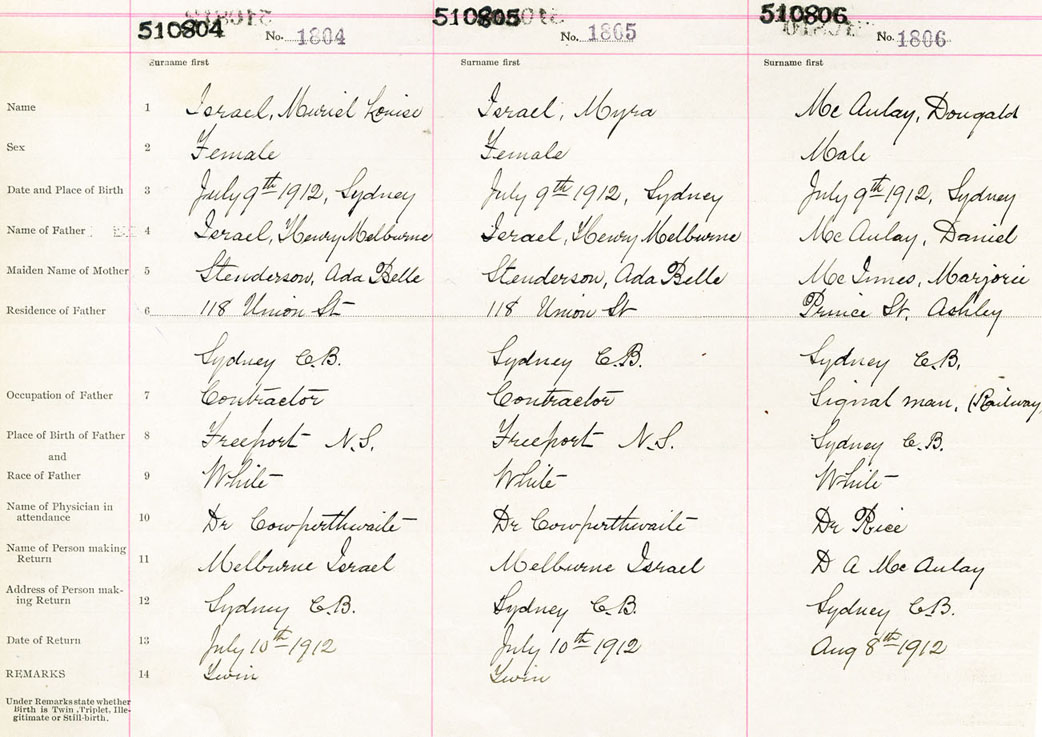 510804 510805 510806
No. 1804 No. 1805 No. 1806
Surname first Surname first Surname first
Name 1 Israel, Muriel Louise Israel, Myra Mc Aulay, Dougald
Sex 2 Female Female Male
Date and Place of Birth 3 July 9th 1912, Sydney July 9th 1912, Sydney July 9th 1912, Sydney
Name of Father 4 Israel, Henry Melburne Israel, Henry Melburne Mc Aulay, Daniel
Maiden Name of Mother 5 Stenderson, Ada Belle Stenderson, Ada Belle Mc Innes, Marjorie
Residence of Father 6 118 Union St 118 Union St Prince St. Ashley
Sydney C.B. Sydney C.B. Sydney C.B.
Occupation of Father 7 Contractor Contractor Signal man, (Railway
Place of Birth of Father 8 Freeport N.S. Freeport N.S. Sydney C.B.
and
Race of Father 9 White White White
Name of Physician in
attendance 10 Dr Cowperthwaite Dr Cowperthwaite Dr Rice
Name of Person making
Return 11 Melburne Israel Melburne Israel D A Mc Aulay
Address of Person mak-
ing Return 12 Sydney C.B. Sydney C.B. Sydney C.B.
Date of Return 13 July 10th 1912 July 10th 1912 Aug 8th 1912
REMARKS 14 Twin Twin
Under Remarks state whether
Birth is Twin, Triplet, Ille-
gitimate or Still-birth.